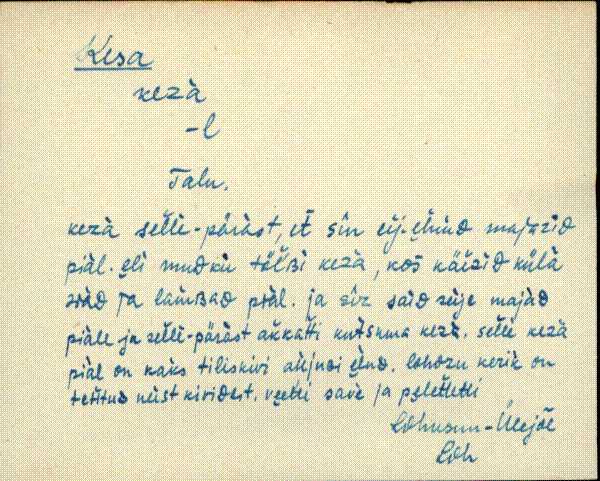 Kesa
kezà
-l
Talu.
kezà selle-pärast, et sîn eij. õlnud majazid
piäl. oli mudku tölBi kezà, kos käizid külä
zead ja lamBad piäl. ja sîz said zeije majad
piäle ja selle-pärast akkatti kutsuma kezà. selle kezà
piäl on kaks teliskivi ahjuoi õlnd. lohozu kerik on
tehtud neist kividest. veetti save ja peletetti
Lohusuu-Ülejõe
Loh